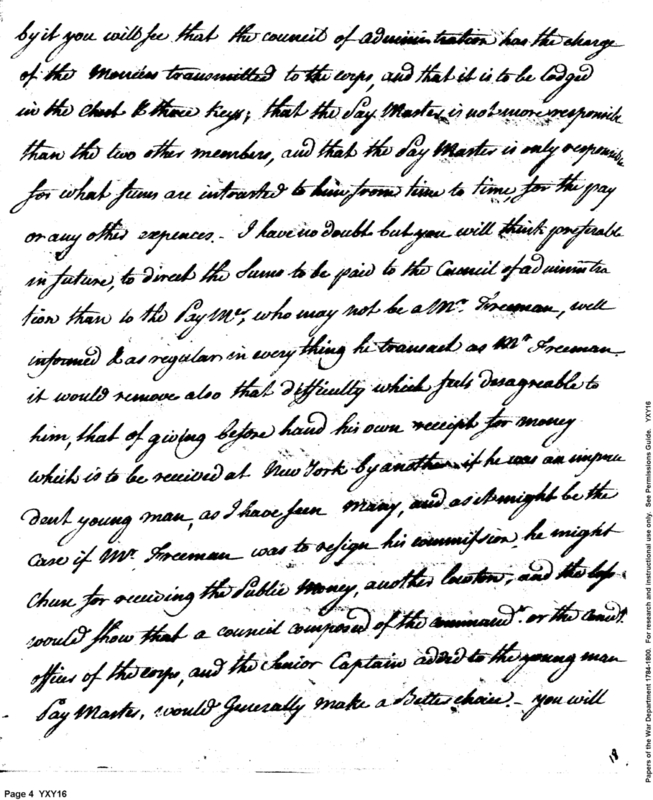 by it you will see that the council of administration has the charge
of the Moneies transmitted to the corps, and that it is to be lodged
in the chest & three keys; that the Pay Master is not more responsible
than the two other members, and that the Pay Master is only responsible
for what sums are intrusted to him from time to time for the pay
or any other expences. - I have no doubt but you will think preferable
in future, to direct the Sums to be paid to the Council of administra
tion than to the Pay Mr, who may not be a Mr. Freeman, well
informed & as regular in every thing he transact as Mr Freeman
it would remove also that difficulty which feels desagreable to
him, that of giving before hand his own receipt for money
which is to be received at New York by another. if he was an impru
dent young man, as I have seen many, and as it might be the
case if Mr. Freeman was to resign his commission, he might
chuse for receiving the Public Money, another and the loss
would show that a council composed of the commandt. or the
officer of the corps, and the Senior Captain added to the young man
Pay Master, would Generally make a Better choice. - you will
18
Page 4 YXY16
Papers of the War Department 1784-1800. For research and instructional use only. See Permissions Guide. YXY16